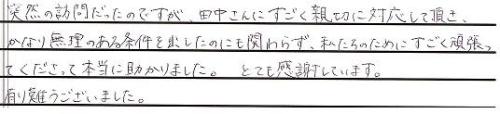 突然の訪問だったのですが、田中さんにすごく親切に対応して頂き、
かなり無理のある条件を出したのにも関わらず、私たちのためにすごく頑張っ
てくださって本当に助かりました。 とても感謝しています。
有り難うございました。